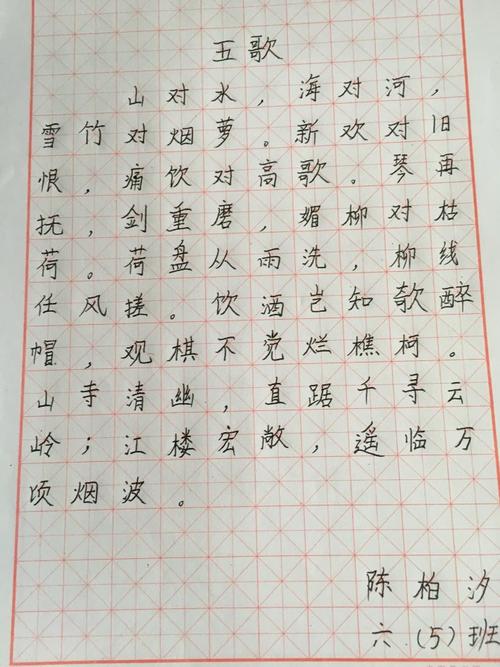 五歌
山对水，海对河，
雪竹对烟萝。新欢对旧
恨，痛饮对高歌。琴再
抚，剑重磨，媚柳对枯
荷。荷盘从雨洗，柳线
任风搓。饮酒岂知欹醉
帽，观棋不党烂樵柯。
山寺清幽，直踞千寻云
岭；江楼宏敞，遥临万
顷烟波。
陈柏汐
六（5）班